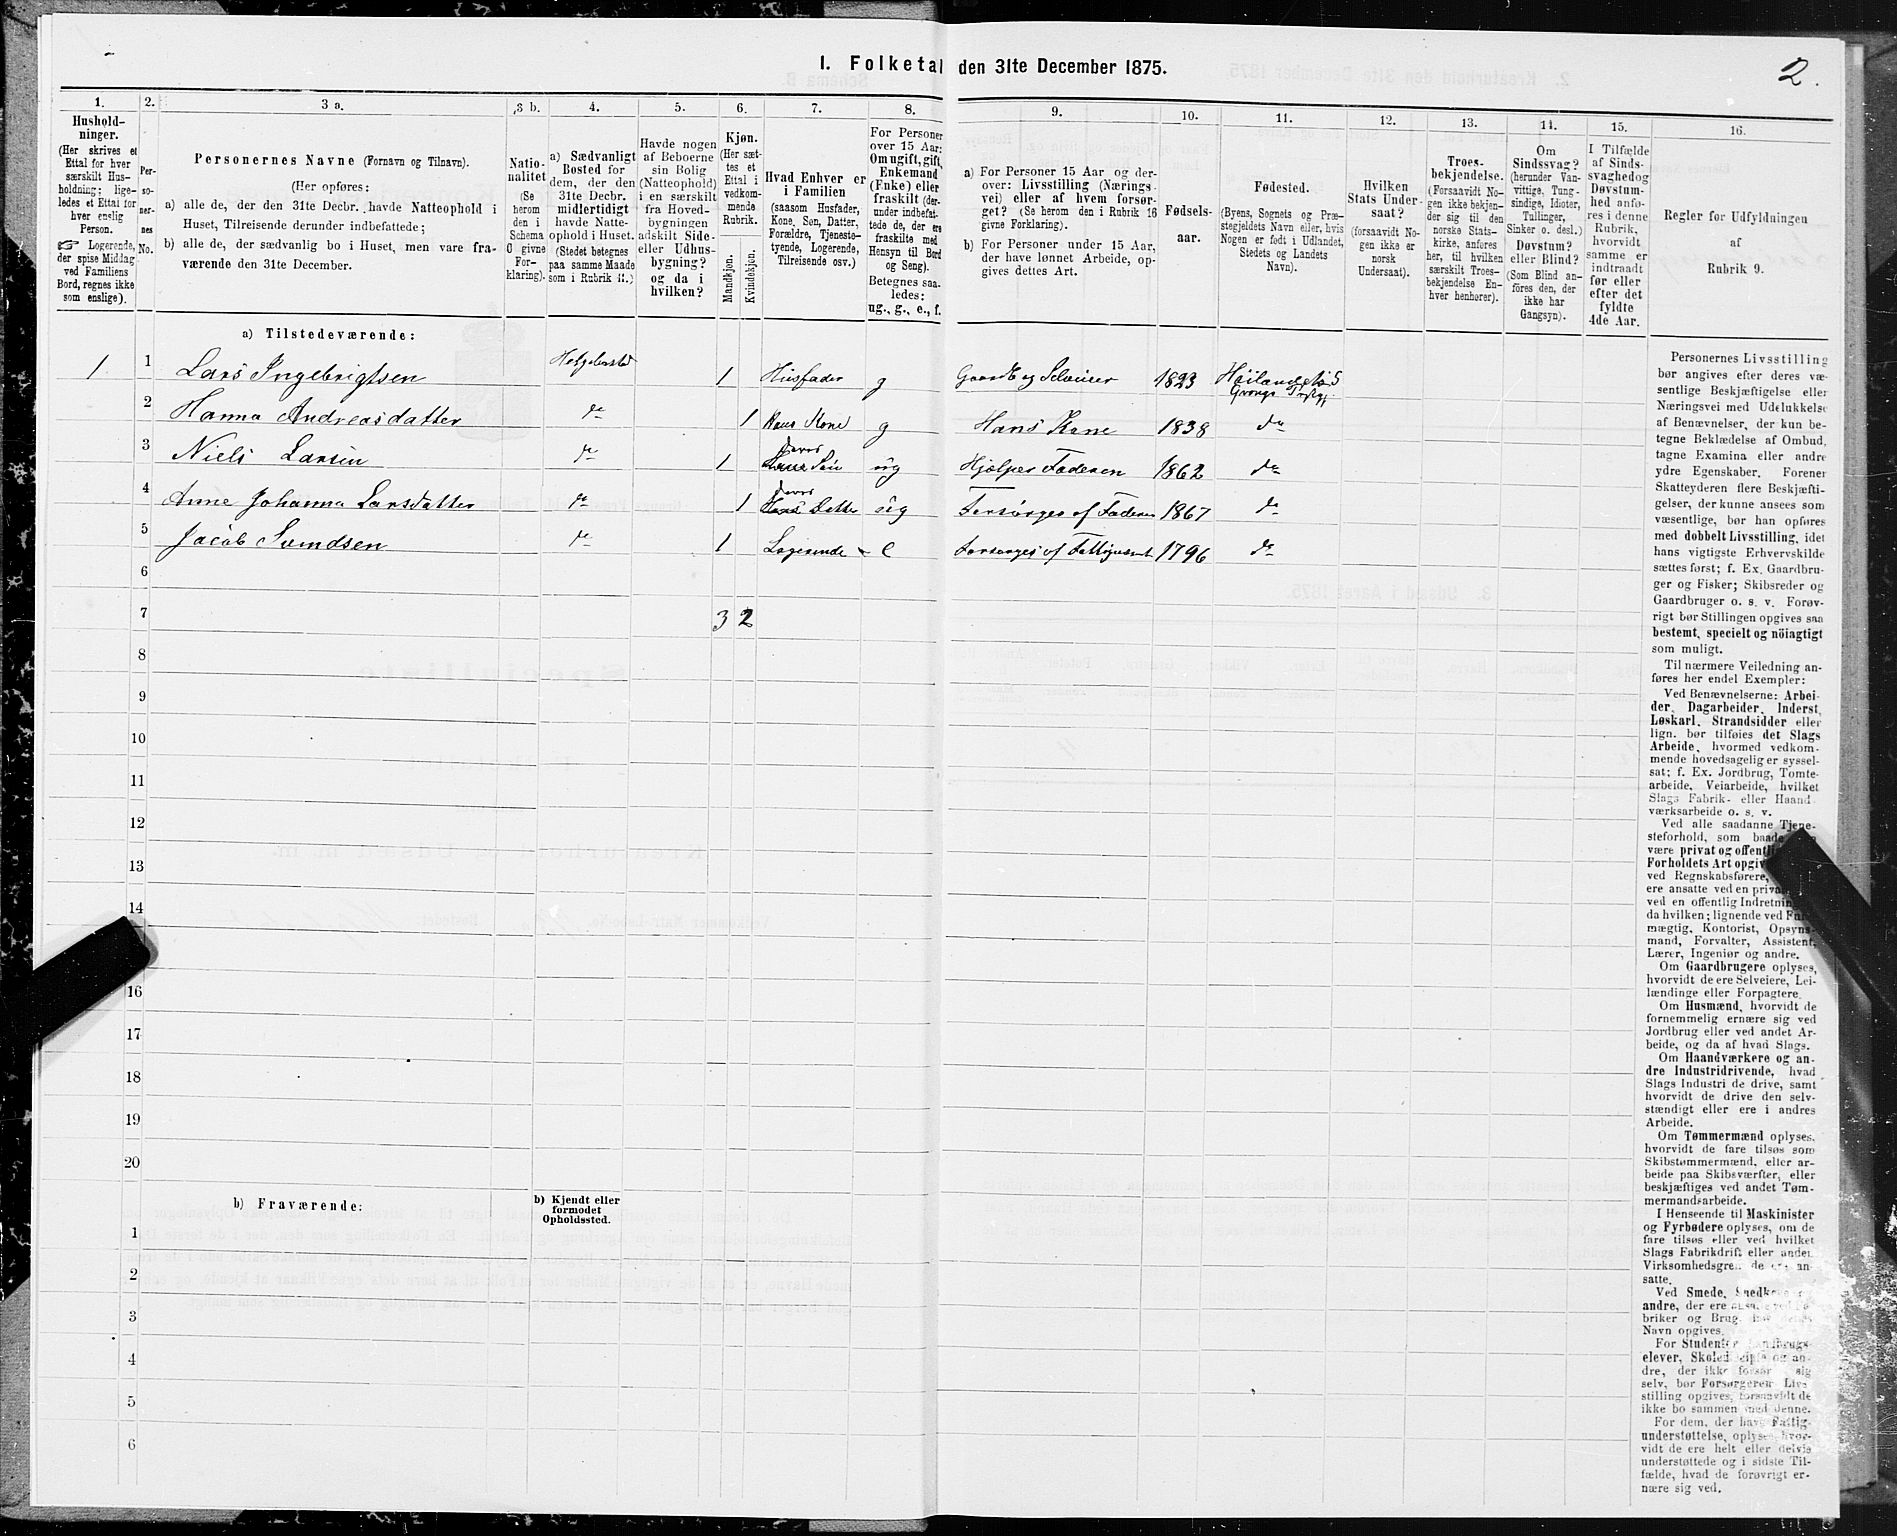 1. Folketal den 31te December 1875.
2.
1.
Hushold-
ninger.
(Her skrives et
Ettal for hver
særskilt Hus-
holdning; lige-
ledes et Ettal for
hver enslig
Person.
☞ Logerende,
der spise Middag
ved Familiens
Bord, regnes ikke
som enslige).
2.
Per-
so-
ner-
nes
No.
3 a.
Personernes Navne (Fornavn og Tilnavn).
(Her opføres:
a) alle de, der den 31te Decbr. havde Natteophold i
Huset, Tilreisende derunder indbefattede;
b) alle de, der sædvanlig bo i Huset, men vare fra-
værende den 31te December.
3 b.
Natio-
nalitet
(Se
herom
den i
Schema
C givne
For-
klaring).
4.
a) Sædvanligt
Bosted for
dem, der den
31te Decbr.
midlertidigt
havde Natte-
ophold i Huset.
(Stedet betegnes
paa samme Maade
som i Rubrik 11.)
5.
Havde nogen
af Beboerne
sin Bolig
(Natteophold)
i en særskilt
fra Hoved-
bygningen
adskilt Side-
eller Udhus-
bygning?
og da i
hvilken?
6.
Kjøn.
(Her sæt-
tes et
Ettal i
vedkom-
mende
Rubrik.
Mandkjøn.
Kvindekjøn.
7.
Hvad Enhver er
i Familien
(saasom Husfader,
Kone, Søn, Datter,
Forældre, Tjeneste-
tyende, Logerende,
Tilreisende osv.)
8.
For Personer
over 15 Aar:
Om ugift, gift,
Enkemand
(Enke) eller
fraskilt (der-
under indbefat-
tede de, der ere
fraskilte med
Hensyn til Bord
og Seng).
Betegnes saa-
ledes:
ug., g., e., f.
9.
a) For Personer 15 Aar og der-
over: Livsstilling (Nærings-
vei) eller af hvem forsør-
get? (Se herom den i Rubrik 16
givne Forklaring).
b) For Personer under 15 Aar,
der have lønnet Arbeide, op-
gives dettes Art.
10.
Fødsels-
aar.
11.
Fødested.
(Byens, Sognets og Præ-
stegjeldets Navn eller, hvis
Nogen er født i Udlandet,
Stedets og Landets
Navn).
12.
Hvilken
Stats Under-
saat?
(forsaavidt No-
gen ikke er
norsk
Undersaat).
13.
Troes-
bekjendelse.
(Forsaavidt No-
gen ikke bekjen-
der sig til den
norske Stats-
kirke, anføres
her, til hvilken
særskilt Troes-
bekjendelse En-
hver henhører).
14.
Om
Sindssvag?
(herunder Van-
vittige, Tung-
sindige, Idioter,
Tullinger,
Sinker o. desl.)
Døvstum?
eller Blind?
(Som Blind an-
føres den, der
ikke har
Gangsyn).
15.
I Tilfælde
af Sinds-
svaghed og
Døvstum-
hed anfø-
res i denne
Rubrik,
hvorvidt
samme er
indtraadt
før eller
efter det
fyldte
4de Aar.
16.
Regler for Udfyldningen
af
Rubrik 9.
a) Tilstedeværende:
1 1 Lars Ingebrigtsen 1 Husfader g 1823 Grongs
2 Hanna Andreasdatter do 1 Hans Kone g Hans Kone 1838 do
3 Niels Larsen do 1 Søn ug Hjælper Faderen 1862 do
4 Anne Johanna Larsdatter do 1 Datter ug Forsørges af Faderen 1867 do
5 Jacob Svendsen do 1 Logerende e Forsørges af 1796 do
6
7 3 2
8
9
10
11
12
13
14
16
17
18
19
20
b) Fraværende:
b) Kjendt eller
formodet
Opholdssted.
1
2
3
4
5
6
Personernes Livsstilling
bør angives efter deres væ-
sentlige Beskjæftigelse eller
Næringsvei med Udelukkelse
af Benævnelser, der kun be-
tegne Beklædelse af Ombud,
tagne Examina eller andre
ydre Egenskaber. Forener
Skatteyderen flere Beskjæfti-
gelser, der kunne ansees som
væsentlige, bør han opføres
med dobbelt Livsstilling, idet
hans vigtigste Erhvervskilde
sættes først; f. Ex. Gaardbru-
ger og Fisker; Skibsreder og
Gaardbruger o. s. v. Forøv-
rigt bør Stillingen opgives saa
bestemt, specielt og nöiagtigt
som muligt.
Til nærmere Veiledning an-
føres her endel Exempler:
Ved Benævnelserne: Arbei-
der, Dagarbeider, Inderst,
Løskarl, Strandsidder eller
lign. bør tilføies det Slags
Arbeide, hvormed vedkom-
mende hovedsagelig er syssel-
sat; f. Ex. Jordbrug, Tomte-
arbeide, Veiarbeide, hvilket
Slags Fabrik- eller Haand-
værksarbeide o. s. v.
Ved alle saadanne Tjene-
steforhold, som baade
være privat og
Forholdets Art
ved Regnskabsførere,
ere ansatte ved en
ved en offentlig
da hvilken; lignende ved
mægtig, Kontorist, Opsyns-
mand, Forvalter, Assistent,
Lærer, Ingeniør og andre.
Om Gaardbrugere oplyses,
hvorvidt de ere Selveiere, Lei-
lændinge eller Forpagtere.
Om Husmænd, hvorvidt de
fornemmelig ernære sig ved
Jordbrug eller ved andet Ar-
beide, og da af hvad Slags.
Om Haandværkere og an-
dre Industridrivende, hvad
Slags Industri de drive, samt
hvorvidt de drive den selv-
stændigt eller ere i andres
Arbeide.
Om Tømmermænd oplyses,
hvorvidt de fare tilsøs som
Skibstømmermænd, eller ar-
beide paa Skibsværfter, eller
beskjæftiges ved andet Tøm-
mermandsarbeide.
I Henseende til Maskinister
og Fyrbødere oplyses, om de
fare tilsøs eller ved hvilket
Slags Fabrikdrift eller anden
de ere an-
satte.
Ved Smede,
andre, der ere
briker og
Navn opgives.
For
elever,
dre, der ikke sig
selv, bør Forsørgeren Livs-
stilling opgives, forsaavidt de
ikke bo sammen med denne.
For dem, der have Fattig-
understøttelse, oplyses, hvor-
vidt de ere helt eller delvis
understøttede og i sidste Til-
fælde, hvad de forøvrigt er-
nære sig ved.